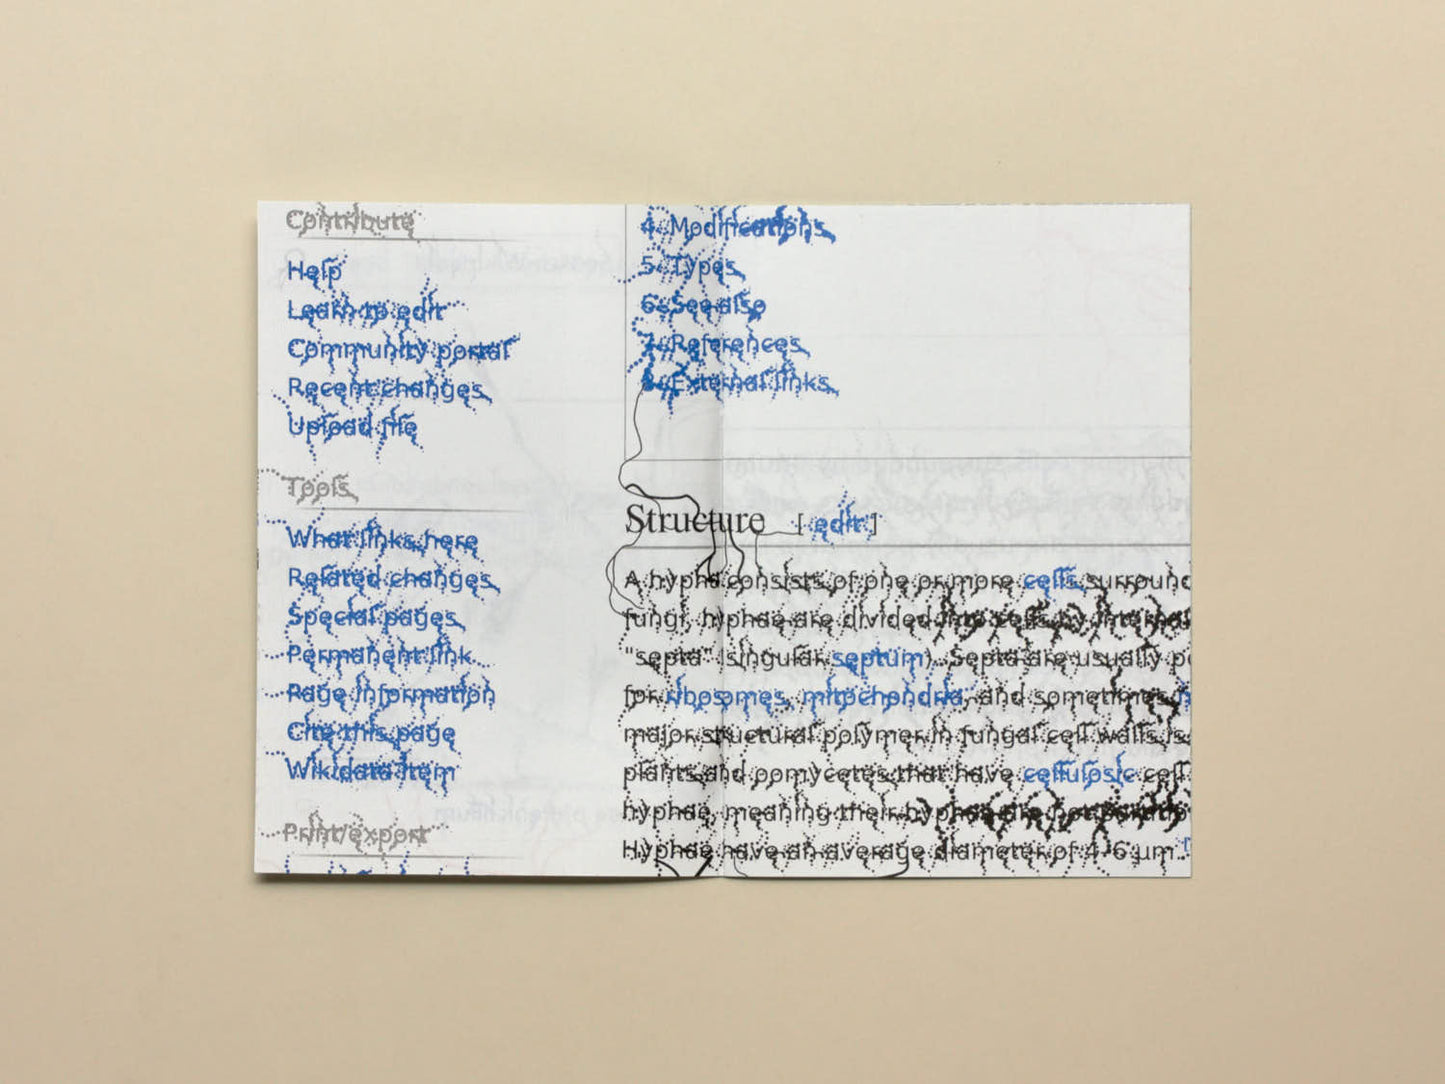 Contribute
Help
Learn to edit
Community portal
Recent changes
Upload file
Tools
What links here
Related changes
Special pages
Permanent link
Page information
Cite this page
Wikidata item
Print/export
4 Modifications
5 Types
6 See also
7 References
8 External links
Structure [ edit ]
A hypha consists of one or more cells surround
fungi, hyphae are divided into cells by internal
"septa" (singular septum). Septa are usually
for ribosomes, mitochondria, and sometimes
major structural polymer in fungal cell walls is
plants and oomycetes that have cellulosic cell
hyphae, meaning their hyphae are not
Hyphae have an average diameter of 4–6 µm.